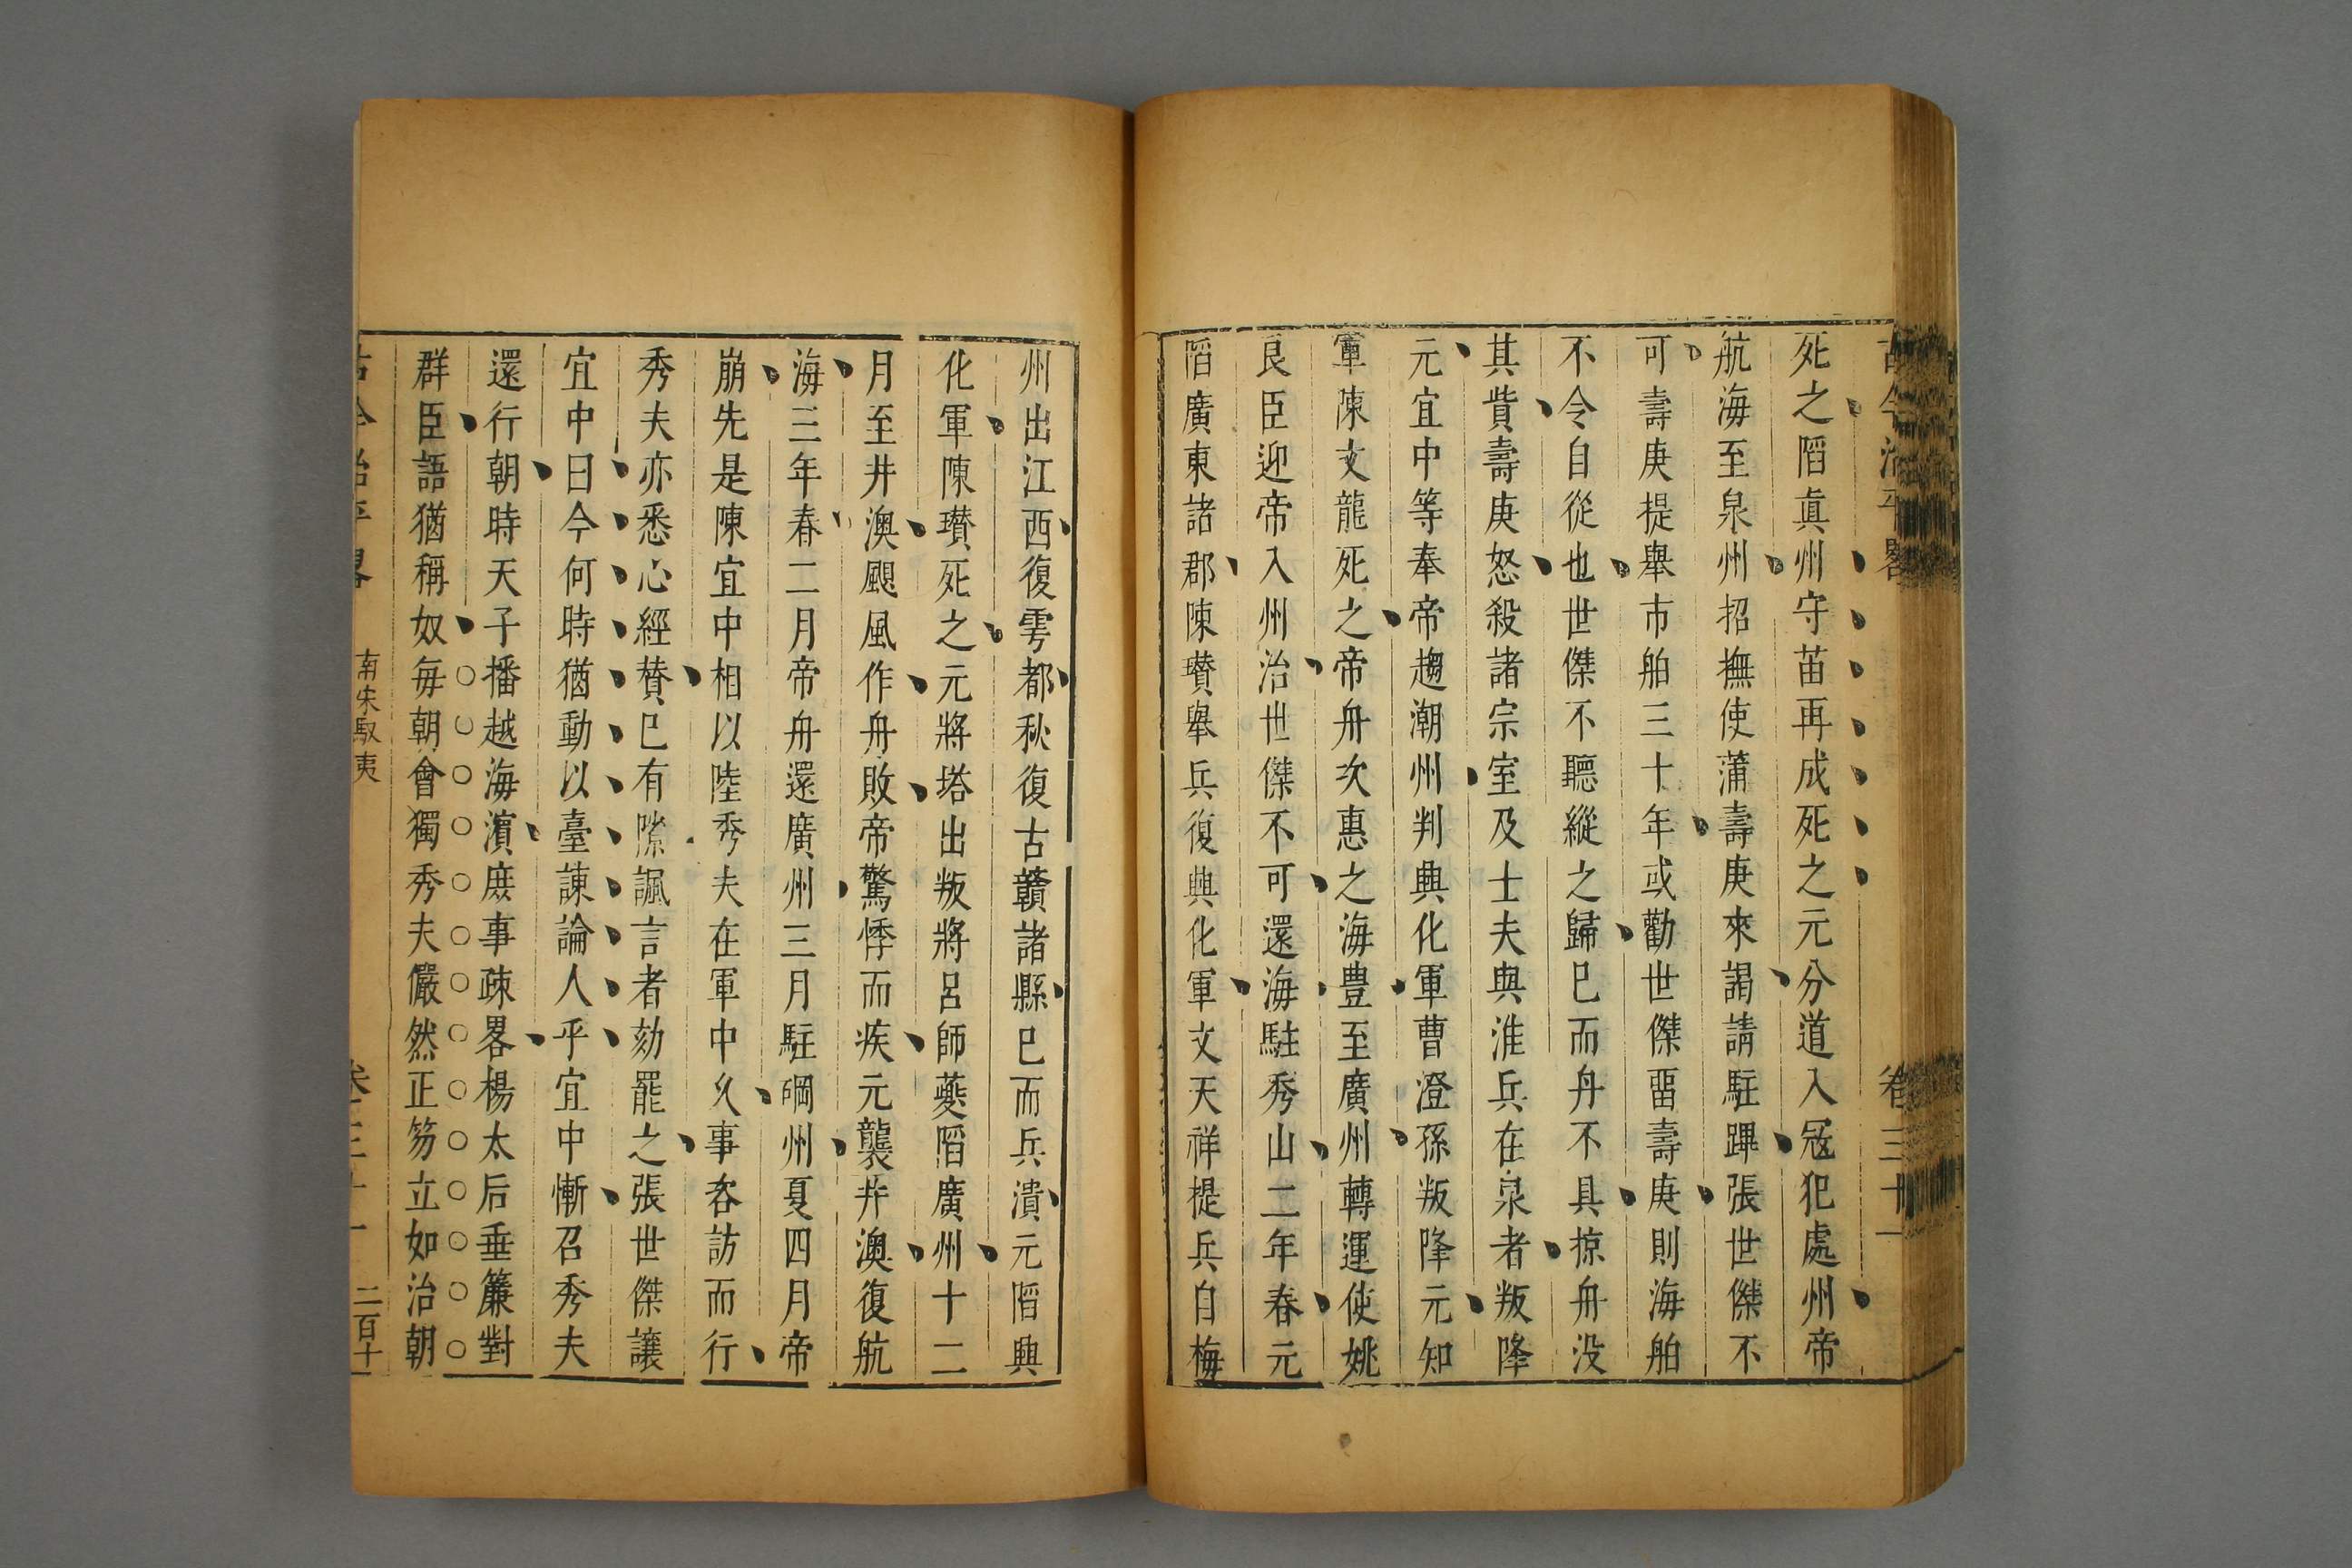 古今治平畧
卷三十一
死之陷眞州守苗再成死之元分道入冦犯處州帝
航海至泉州招撫使蒲壽庚來謁請駐蹕張世傑不
可壽庚提舉市舶三十年或勸世傑畱壽庚則海舶
不令自從也世傑不聽縱之歸巳而舟不具掠舟没
其貲壽庚怒殺諸宗室及士夫與淮兵在泉者叛降
元宜中等奉帝趨潮州判興化軍曹澄孫叛降元知
軍陳文龍死之帝舟次惠之海豊至廣州轉運使姚
良臣迎帝入州治世傑不可還海駐秀山二年春元
陷廣東諸郡陳瓉舉兵復興化軍文天祥提兵自梅
州出江西復雩都秋復古贛諸縣巳而兵潰元陷興
化軍陳瓉死之元將塔出叛將呂師夔陷廣州十二
月至井澳颶風作舟敗帝驚悸而疾元襲井澳復航
海三年春二月帝舟還廣州三月駐碙州夏四月帝
崩先是陳宜中相以陸秀夫在軍中久事咨訪而行
秀夫亦悉心經贊巳有隙諷言者劾罷之張世傑讓
宜中曰今何時猶動以臺諫論人乎宜中慚召秀夫
還行朝時天子播越海濵庶事疎畧楊太后垂簾對
群臣語猶稱奴毎朝會獨秀夫儼然正笏立如治朝
古今治平畧
南宋馭夷
卷三十一
二百十一